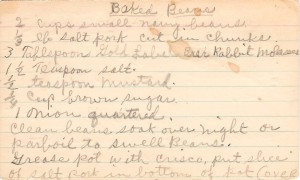 Baked Beans
2 Cups small navy beans
1/2 lb Salt pork cut in chunks.
3 Tablespoons Gold Label Brer Rabbit Molasses
1 1/2 Teaspoon salt.
1/2 teaspoon mustard.
1/2 Cup brown sugar.
1 Onion quartered.
Clean beans soak over night or
parboil to swell Beans.
Grease pot with crisco, put slice
of salt pork in bottom of pot (over